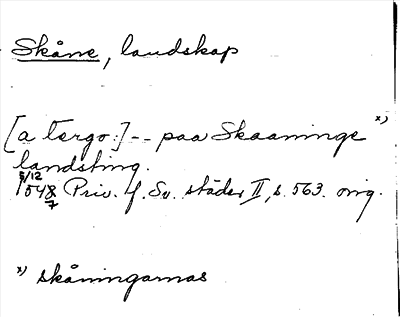 Skåne, landskap
[a tergo:] -- paa Skaaninge x)
landsting.
5/12 1548 7 Priv. f. Sv. städer II, s. 563. orig.
x) skåningarnas